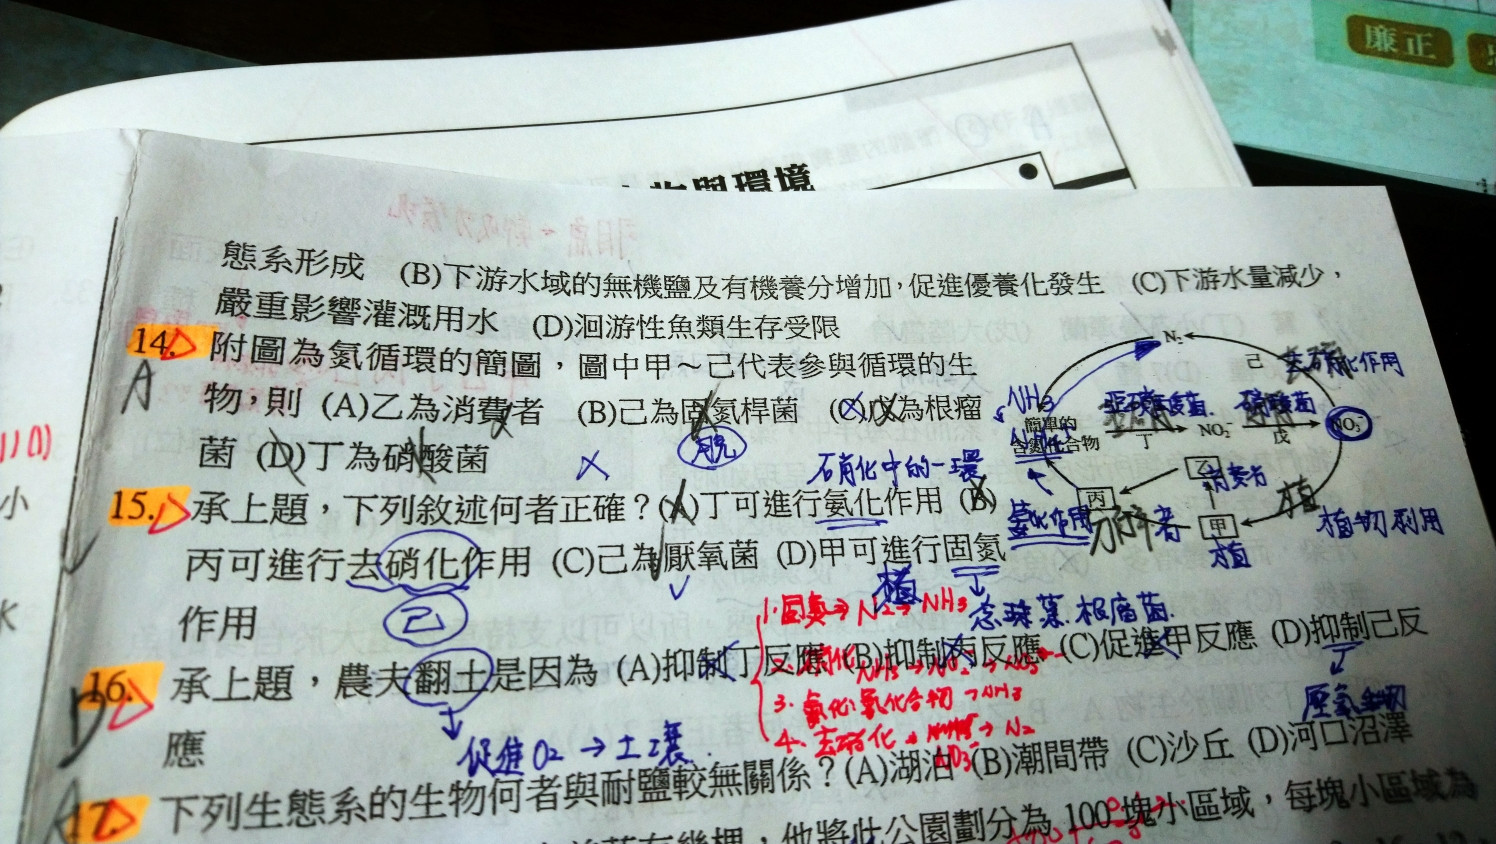 廉正
與環境
態系形成 (B)下游水域的無機鹽及有機養分增加,促進優養化發生 (C)下游水量減少,
嚴重影響灌溉用水 (D)洄游性魚類生存受限
14. 附圖為氮循環的簡圖,圖中甲~己代表參與循環的生
A 物,則 (A)乙為消費者 (B)己為固氮桿菌 (C)戊為根瘤
菌 (D)丁為硝酸菌
脫
15. 承上題,下列敘述何者正確?(A)丁可進行氨化作用 (B)
丙可進行去硝化作用 (C)己為厭氧菌 (D)甲可進行固氮
作用
己
硝化中的一環
植
念珠藻.根瘤菌.
N₂
己
去硝化作用
NH₃
簡單的
含氮化合物
丁
NO₂⁻
硝酸菌
戊
NO₃⁻
乙
消費者
丙
分解者
甲
植
植
植物利用
氨化作用
1.固氮→N₂→NH₃
16. 承上題,農夫翻土是因為 (A)抑制丁反應 (B)抑制丙反應 (C)促進甲反應 (D)抑制己反
D
應
促進O₂→土壤
3.氨化:氮化合物→NH₃
4.去硝化
→N₂
NO₃⁻
17. 下列生態系的生物何者與耐鹽較無關係?(A)湖泊 (B)潮間帶 (C)沙丘 (D)河口沼澤
他將此公園劃分為 100 塊小區域,每塊小區域為